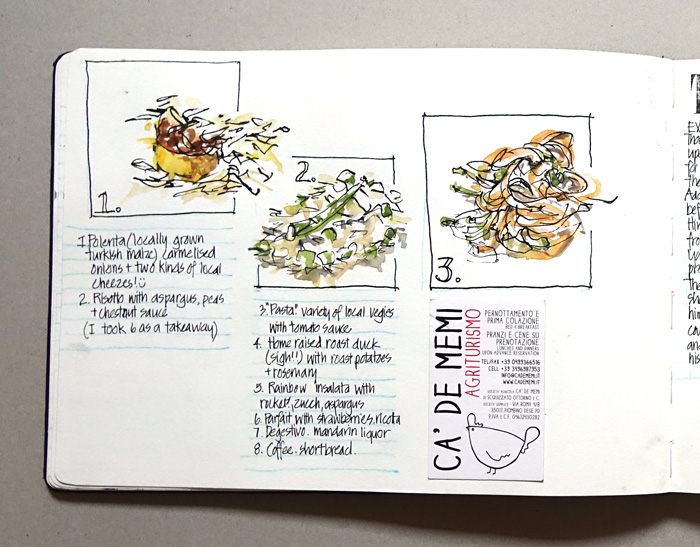 1.
1. Polenta (locally grown
turkish maize) carmelised
onions + two kinds of local
cheezes!
2. Risotto with aspargus, peas
+ chestnut sauce
(I took 6 as a takeaway)
2.
3. "Pasta" variety of local vegies
with tomato sauce
4. Home raised roast duck
(sigh!!) with roast potatoes
+ rosemary
5. Rainbow insalata with
rocket, zucch, aspargus
6. Parfait with strawberries, ricota
7. Degestivo. mandarin liquor
8. Coffee. shortbread.
3.
CA' DE MEMI
AGRITURISMO
PERNOTTAMENTO E
PRIMA COLAZIONE
BED & BREAKFAST
PRANZI E CENE SU
PRENOTAZIONE
LUNCHES AND DINNERS
UPON ADVANCE RESERVATION
TEL/FAX +39 0499366516
CELL +39 3496987953
INFO@CADEMEMI.IT
WWW.CADEMEMI.IT
CA' DE MEMI
OTTORINO S.C.
VIA ROMA 4/B
PIOMBINO DESE PD
P.IVA E C.F.